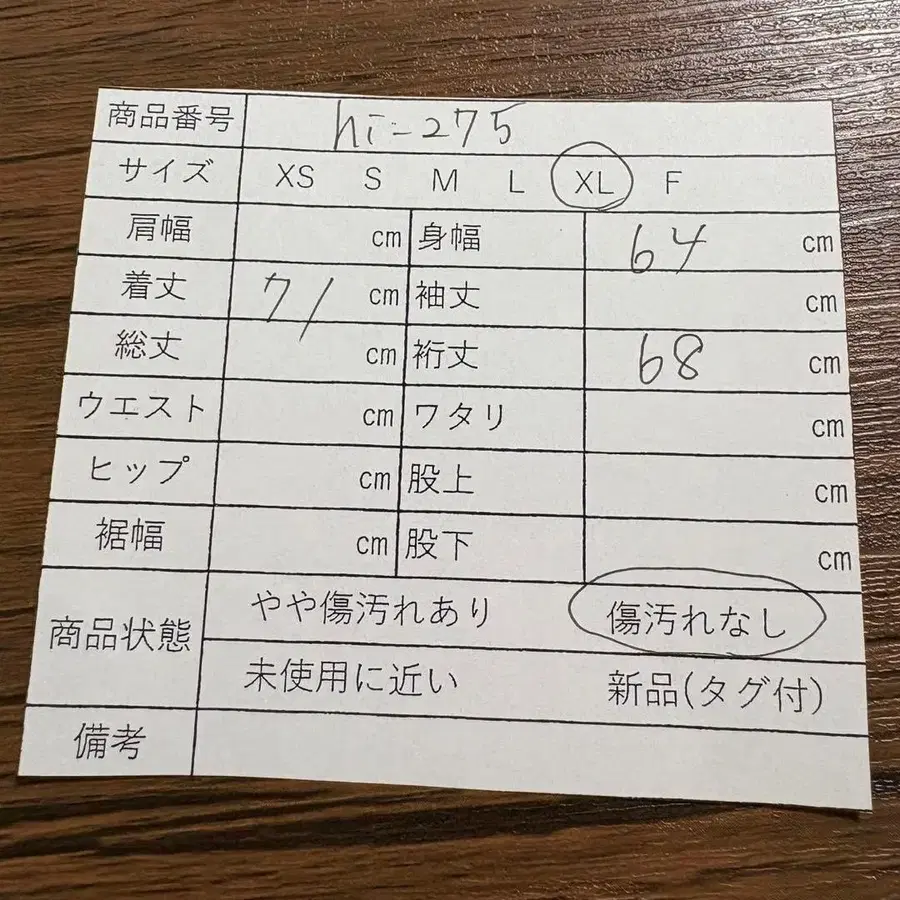 商品番号 hi-275
サイズ XS S M L XL F
肩幅 cm 身幅 64 cm
着丈 71 cm 袖丈 cm
総丈 cm 裄丈 68 cm
ウエスト cm ワタリ cm
ヒップ cm 股上 cm
裾幅 cm 股下 cm
商品状態 やや傷汚れあり 傷汚れなし
未使用に近い 新品(タグ付)
備考